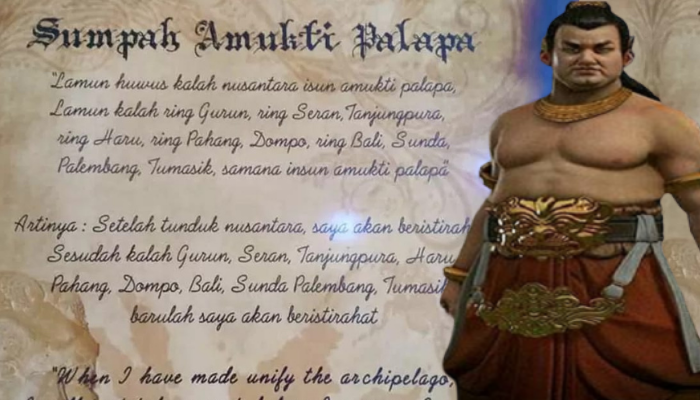 Sumpah Amukti Palapa
"Lamun huwus kalah nusantara isun amukti palapa,
Lamun kalah ring Gurun, ring Seran,Tanjungpura,
ring Haru, ring Pahang, Dompo, ring Bali, Sunda,
Palembang, Tumasik, samana insun amukti palapa"
Artinya : Setelah tunduk nusantara, saya akan beristirah
Sesudah kalah Gurun, Seran, Tanjungpura, Haru
Pahang, Dompo, Bali, Sunda Palembang, Tumasik
barulah saya akan beristirahat
"When I have made unify the archipelago,